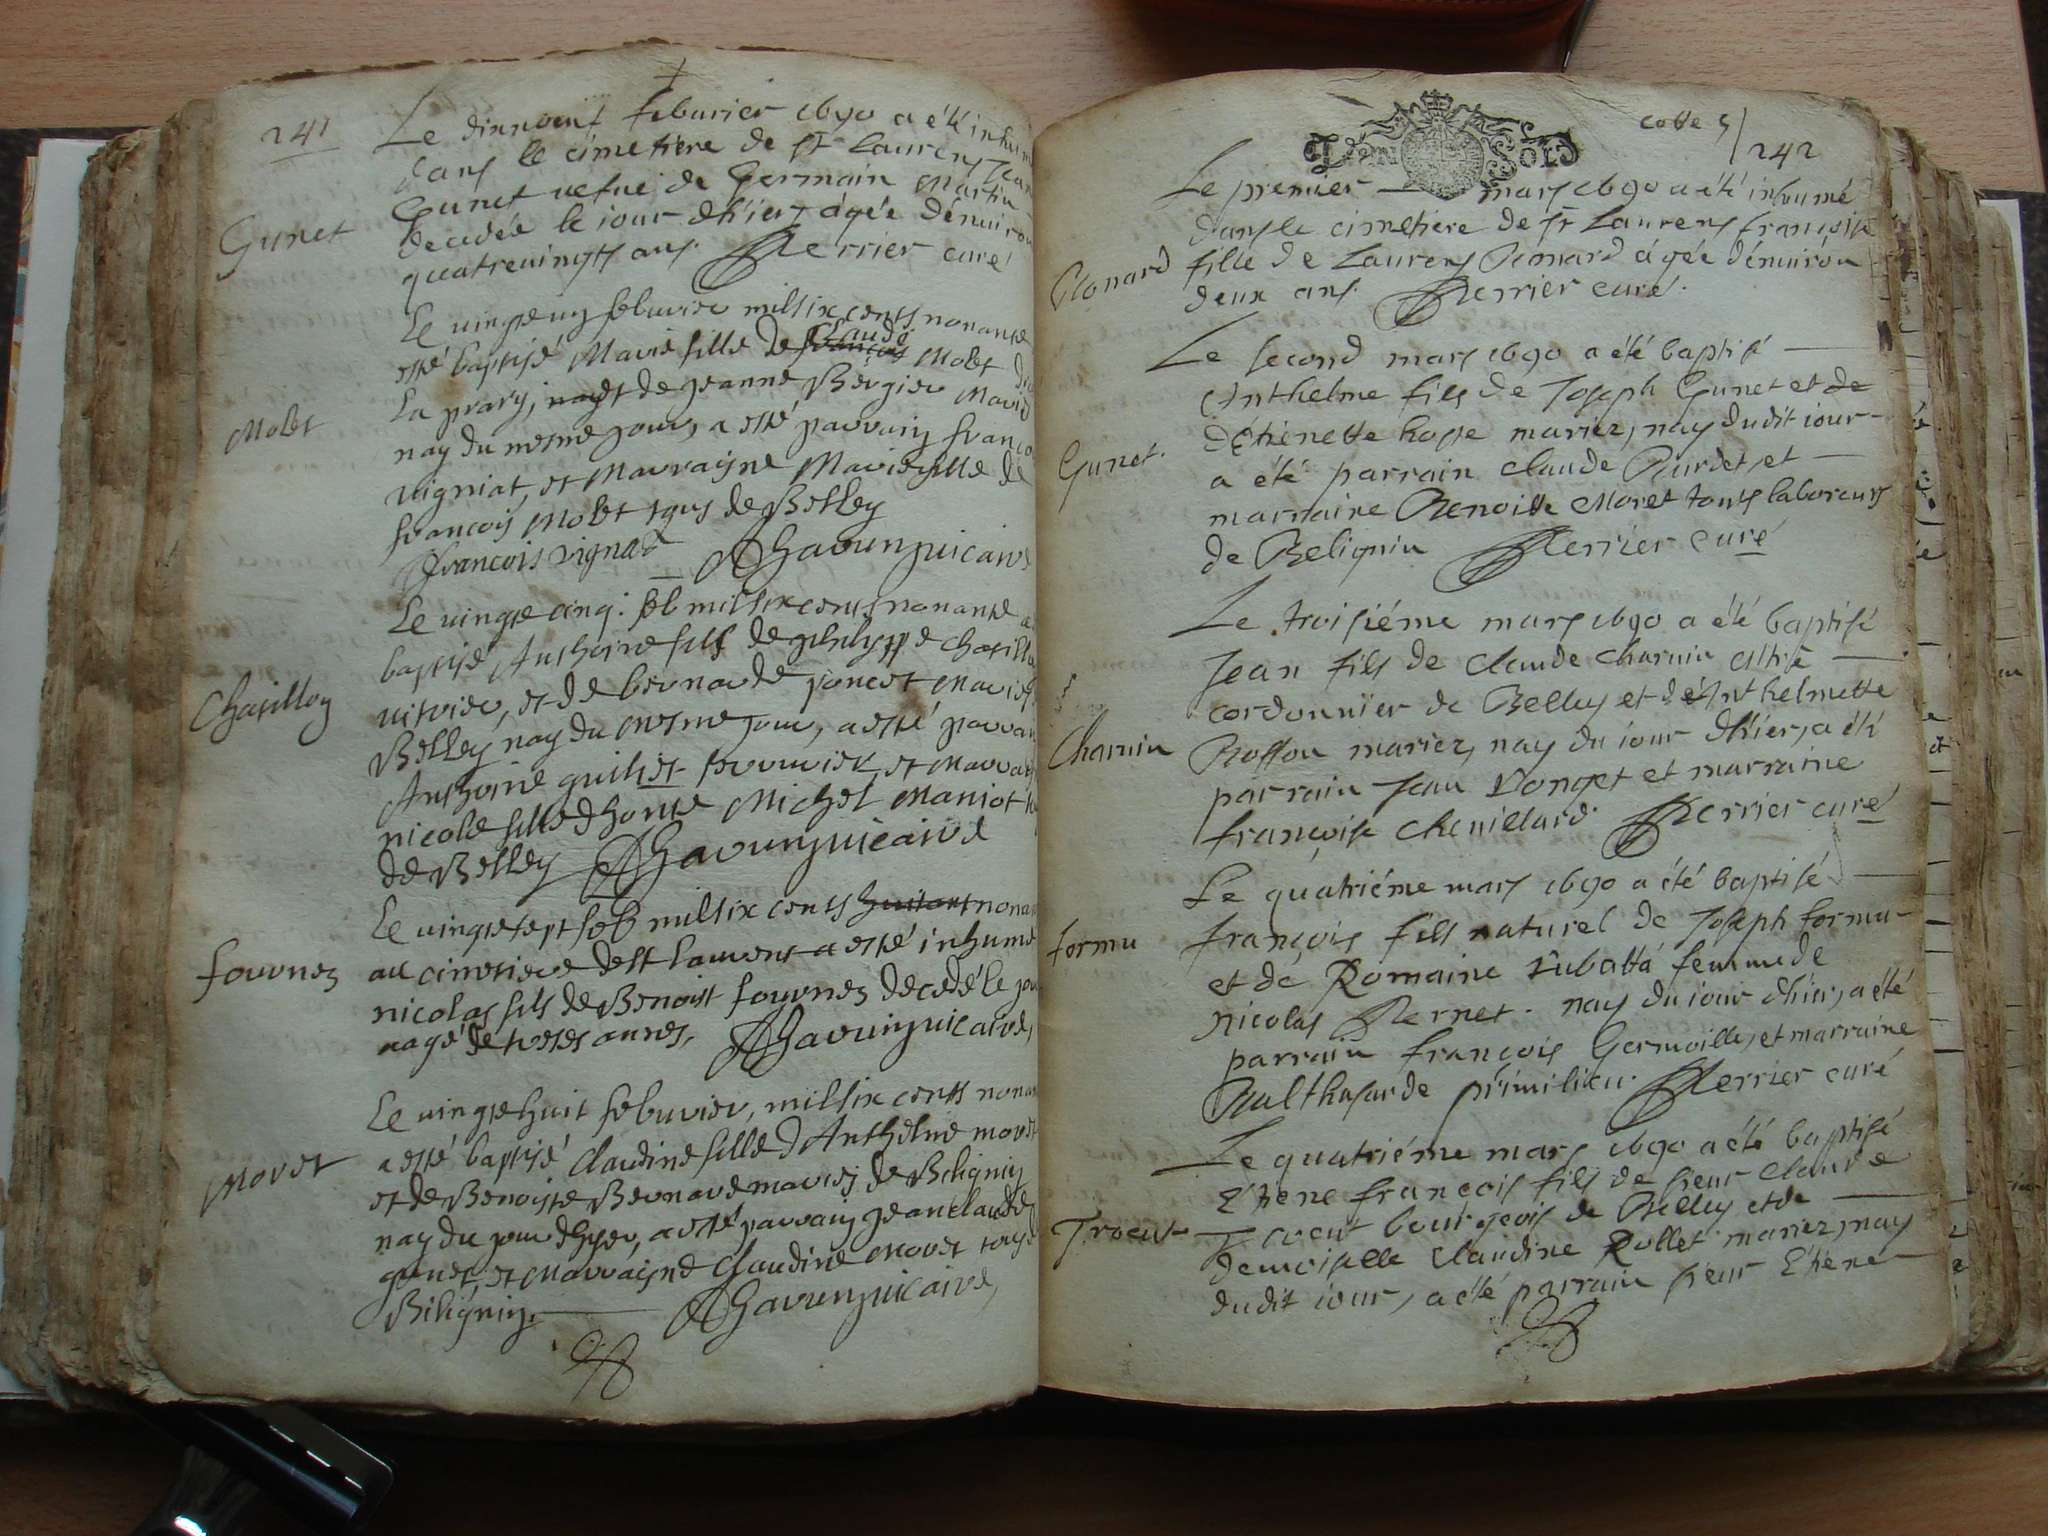 241
Le dixneuf feburier 1690 a été inhum
dans le cimetiere de St Laurens Jean
Gunet
Gunet vefue de Germain Martin
decedée le iour d'hier âgée d'enuiron
quatreuingts ans. Perrier curé
Le vingt & un febvrier mil six cents nonante
esté baptisé Marie fille de françois Claude Molet de
Molet
la prary, nay et de jeanne Bergier Marié
nay du mesme jour, a esté parrain franco
vigniat, et Marrayne Marie fille de
françois Molet tous de Belley
françois vignat Charcun vicaire
Le vingte cinq: feb mil six cents nonante a
baptisé Anthoine fils de philippe chatillo
Chatillon
vitrier, et de bernarde poncet Mariés
Belley nay du mesme jour, a esté parrai
Anthoine guillet serrurier, et Marrai
nicole fille d'honte Michel Maniot to
de Belley vicaire
Le vingte sept feb mil six cents huitant nonan
fournez
au cimetiere de St laurent a esté inhumé
nicolas fils de Benoist fournez decedé le jou
nagé de treses annes, vicaire
Le vingte huit febvrier, mil six cents nonan
Moret
a esté baptisé claudine fille d'Anthelme moret
et de Benoiste Bernard mariés de Biligniy
nay du jour d'hyer, a esté parrain jean claude
gonet, et Marrayne claudine Moret tous de
Biligniy. vicaire
cotte 5
242
Le premier mars 1690 a été inhumé
dans le cimetiere de St Laurens françoise
Bonard
fille de Laurens Bonnard âgée d'enuirón
deux ans. Perrier curé.
Le second mars 1690 a été baptisé
Anthelme fils de Joseph Gunet et de
Gunet.
d'Etienette hosse mariez, nay dudit iour
a été parrain claude Burdet, et
marraine Benoitte Moret touts laboreurs
de Belignin Perrier curé
Le troisiéme mars 1690 a été baptisé
Jean fils de claude charuin Mtre
cordonnier de Belley et d'Anthelmette
Charuin
Rosson mariez, nay du iour d'hier, a été
parrain Jean Vonget et marraine
françoise cheuillard. Perrier curé
Le quatriéme mars 1690 a été baptisé
formu
françois fils naturel de Joseph formu
et de Romaine Rubatta femme de
Nicolas Pernet. nay du iour d'hier, a été
parrain françois Germoille, et marraine
Balthasarde primilieu. Perrier curé
Le quatriéme mars 1690 a été baptisé
Etiene françois fils de sieur claude
Trocut
Trocut bourgeois de Belley et de
demoiselle claudine Rollet mariez, nay
dudit iour, a été parrain sieur Etiene